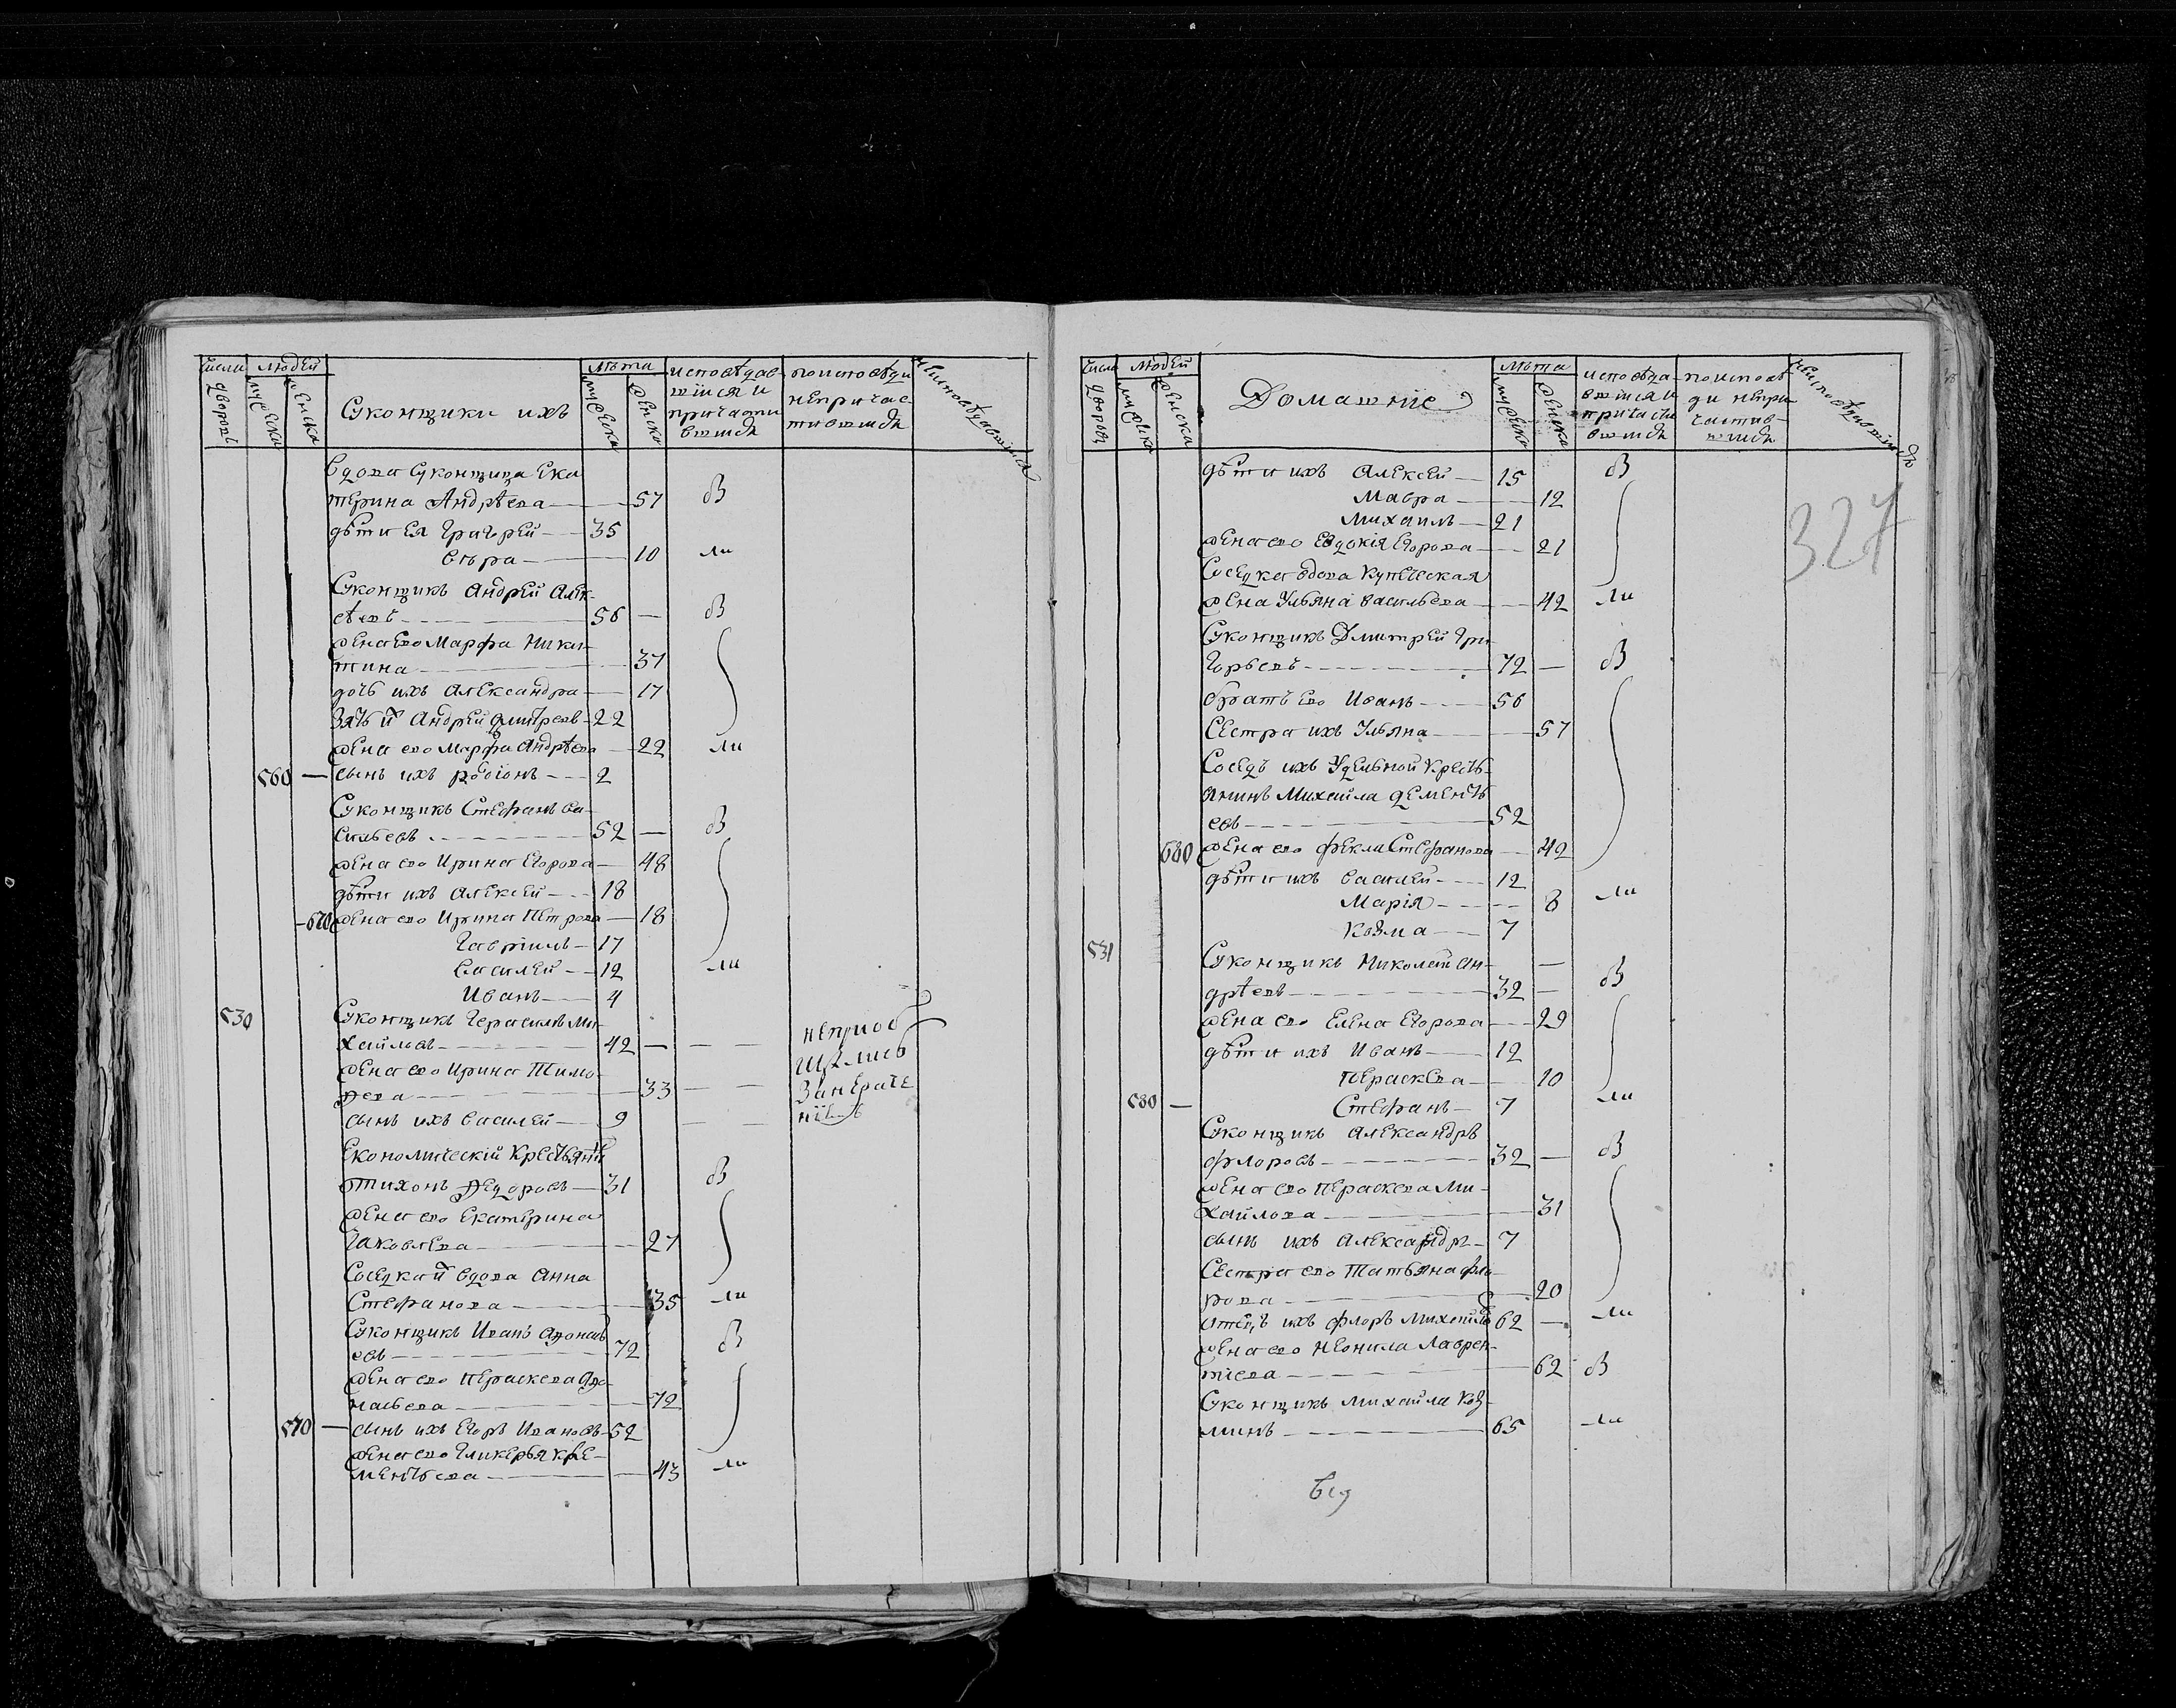 Числа
дворовъ
людей
мужеска
женска
Суконщики ихъ
лѣта
мужеска
женска
исповѣдав
шїися и
причасти
вшїися
по исповѣди
непричас
тившїися
неисповѣдавшїися
вдова суконщица Ека
терина Андрѣева 57 в
дѣти ея Григорей 35
вѣра 10 ли
Суконщикъ Андрей Алек
сѣевъ 56 — в
жена ево Марфа Ники
тина 37
дочь ихъ Александра 17
зять и͠ Андрей дмитреев 22
жена ево Марфа Андрѣева 22 ли
560 — сынъ ихъ родїонъ 2
Суконщикъ Стефанъ Ва
сильевъ 52 — в
жена ево Ирина Егорова 48
дѣти ихъ Алексей 18
670 жена ево Ирина Петрова 18
Гаврїилъ 17
Василей 12 ли
Иванъ 4
530 Суконщикъ Герасимъ Ми
хайловъ 42 — — неприоб
щялись
жена ево Ирина Тимо
феева 33 — — за нераче
сынъ ихъ Василей 9 — — нїемъ
Економическїй Крестьяни
тихонъ Федоровъ 31 в
жена ево Екатерина
Яковлева 27
Соседка и͠ вдова Анна
Стефанова 35 ли
Суконщикъ Иванъ Афонась
евъ 72 в
жена ево Пераскева Афо
насьева 72
570 — сынъ ихъ Егоръ Ивановъ 52
жена ево Гликерья Кле
ментьева 43 ли
Числа
дворовъ
людей
мужеска
женска
Домашнїе
лѣта
мужеска
женска
исповѣда
вшїися и
причасти
вшїися
по исповѣ
ди непри
частив
шїися
неисповѣдавшїися
327
дѣти ихъ Алексей 15 в
Мавра 12
Михаилъ 21
жена ево Евдокїя Егорова 21
Соседка вдова Купеческая
жена Ульяна васильева 42 ли
Суконщикъ Дмитрей Гри
горьевъ 72 — в
братъ ево Иванъ 56
Сестра ихъ Ульяна 57
Соседъ ихъ Удельной Кресть
янинъ Михайла дементь
евъ 52
680 жена ево фекла Стефанова 42
дѣти ихъ Василей 12
Марїя 8 ли
Козма 7
531 Суконщикъ Николай Ан
дрѣевъ 32 — в
жена ево Елена Егорова 29
дѣти ихъ Иванъ 12
Пераскева 10
580 — Стефанъ 7 ли
Суконщикъ Александръ
флоровъ 32 — в
жена ево Пераскева Ми
хайлова 31
сынъ ихъ Александръ 7
Сестра ево Татьяна фло
рова 20
отецъ ихъ флоръ Михайло 62 — ли
жена ево Неонила Лаврен
тїева 62 в
Суконщикъ Михайла Коз
минъ 65 ли